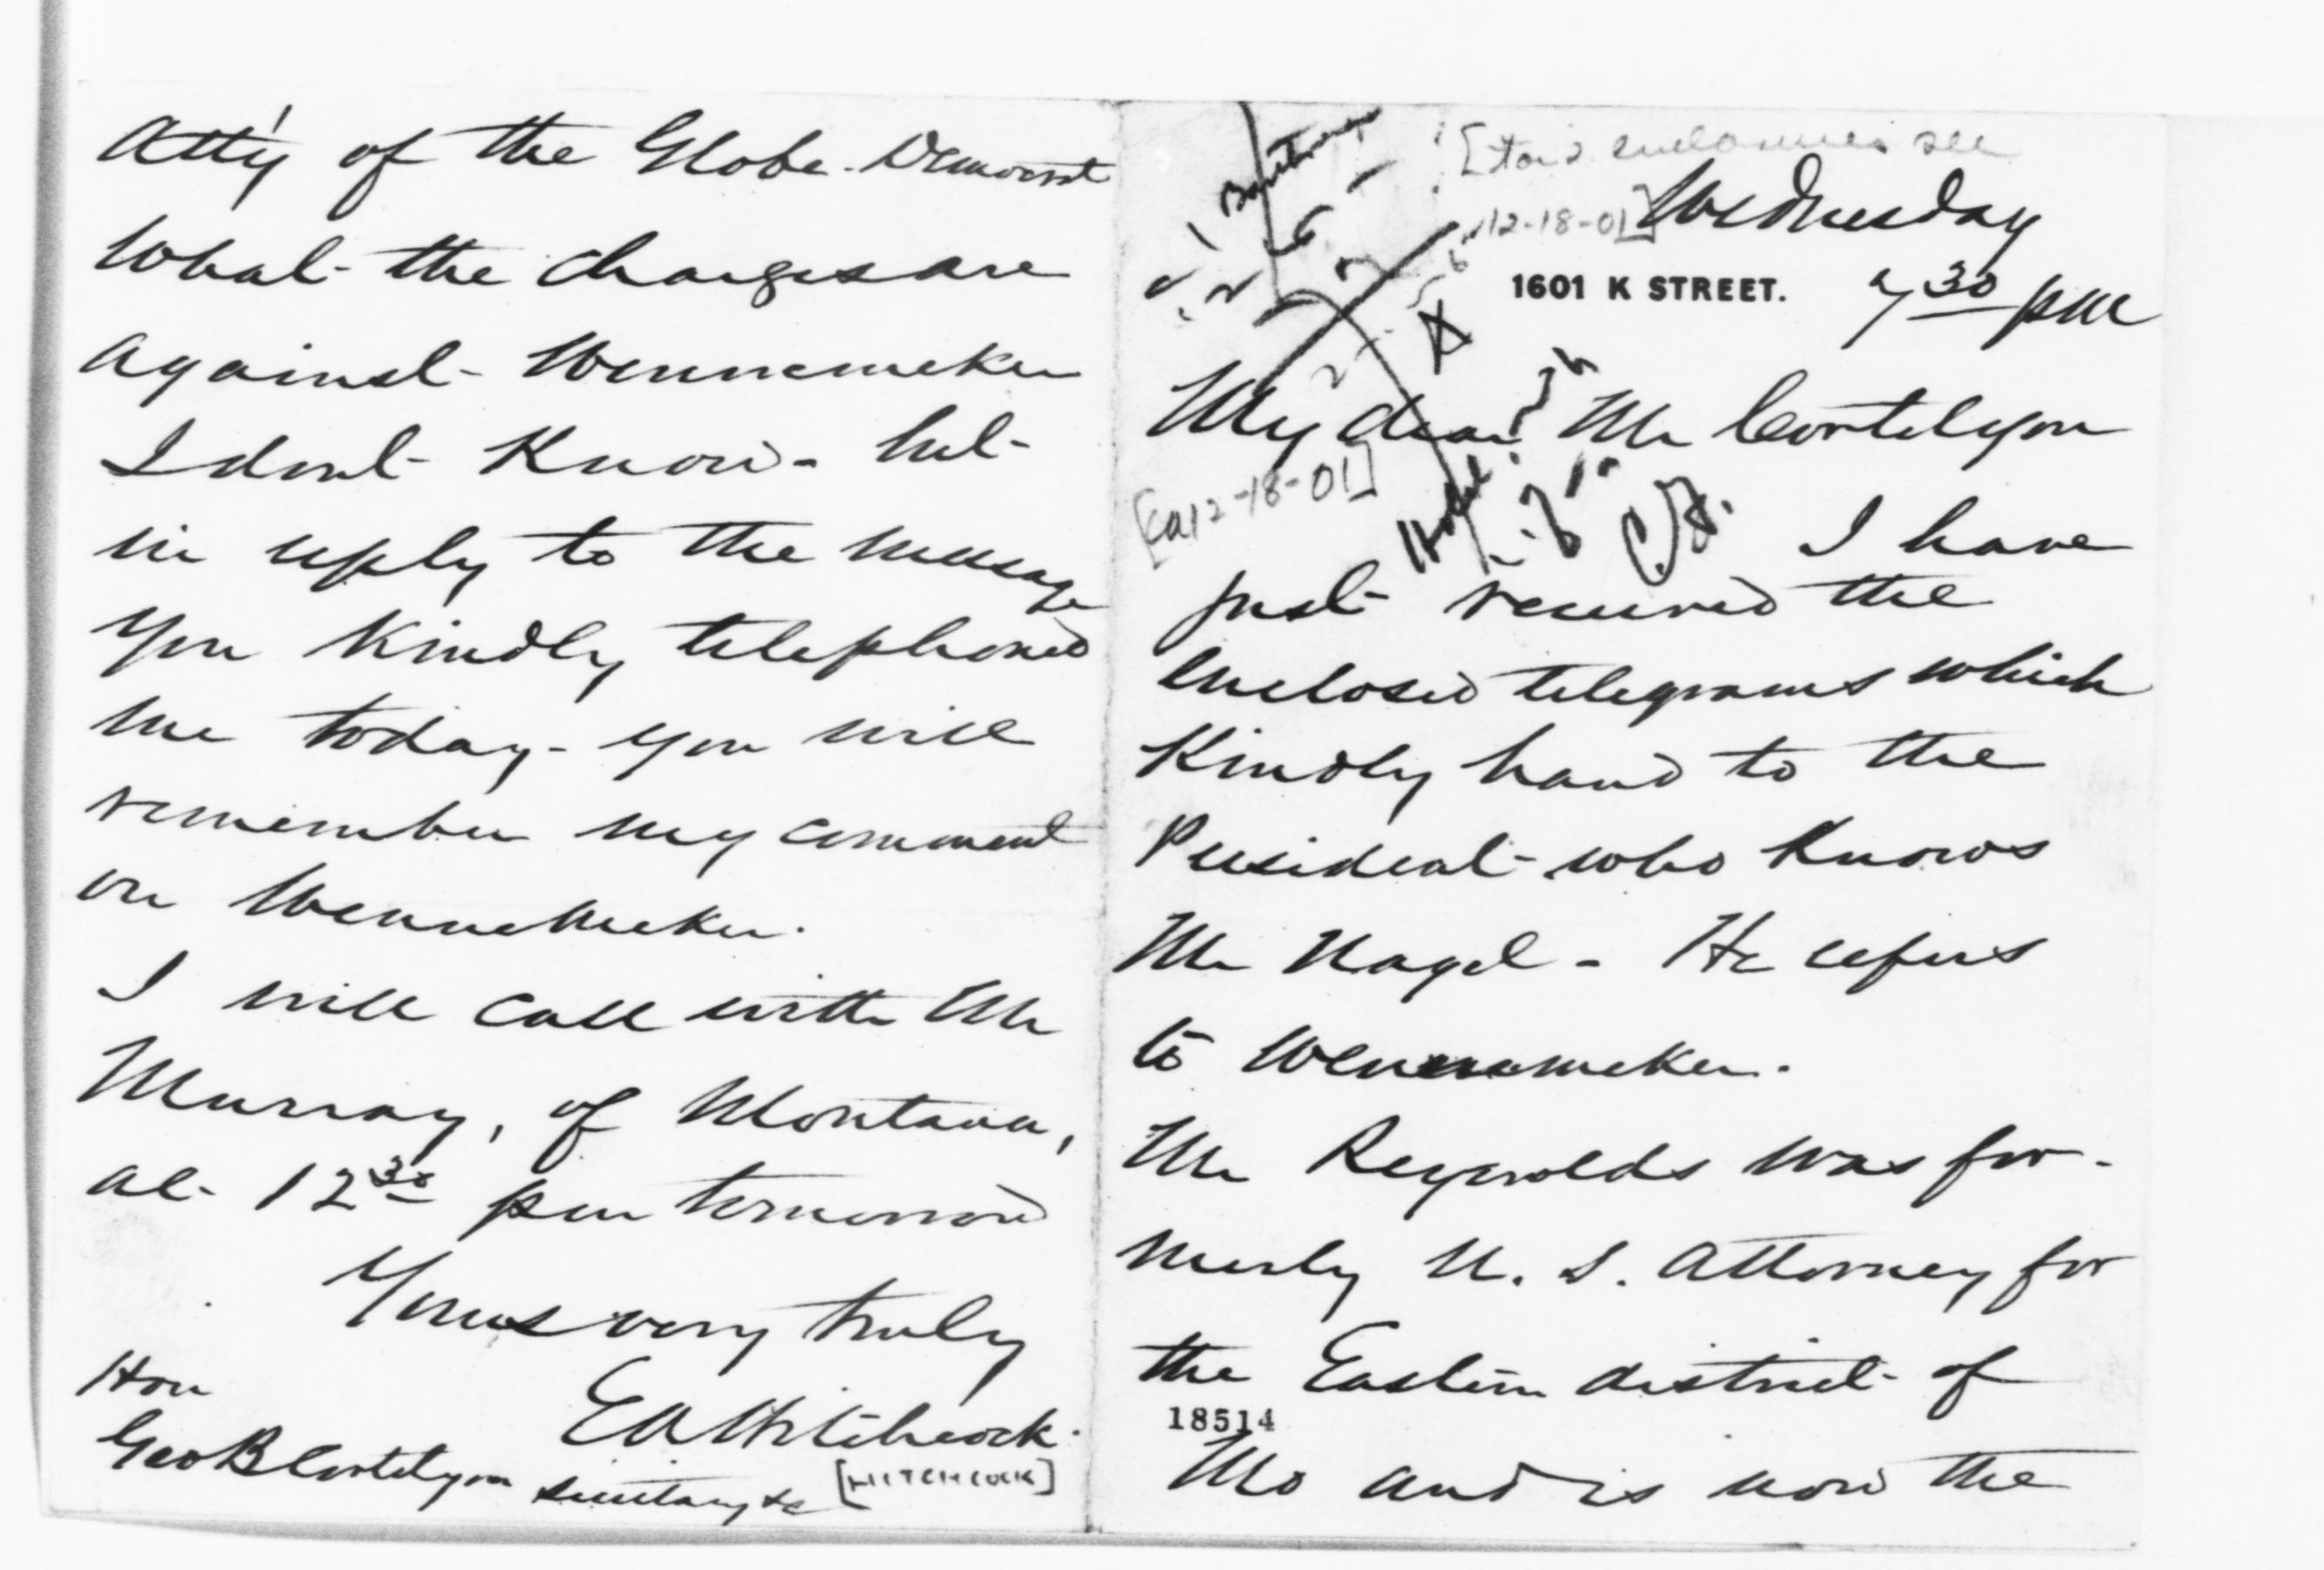 [for 2 enclosures see
12-18-01]
Wednesday
1601 K STREET.
7 30 pm
My dear Mr Cortelyou
[ca 12-18-01]
I have
just received the
enclosed telegrams which
Kindly hand to the
President - who Knows
Mr Nagel - He refers
to Wennemeker.
Mr Reynolds was for-
merly U. S. Attorney for
the Eastern district of
18514
Mo and is now the
Atty' of the Globe-Democrat
What the charges are
against Wennemeker
I dont Know - but
in reply to the message
you Kindly telephoned
me today - you will
remember my comment
on Wennemeker.
I will call with Mr
Murray, of Montana,
at 12 30 pm tomorrow
Yours very truly
EA Hitchcock.
[HITCHCOCK]
Hon
Geo B Cortelyou Secretary &c